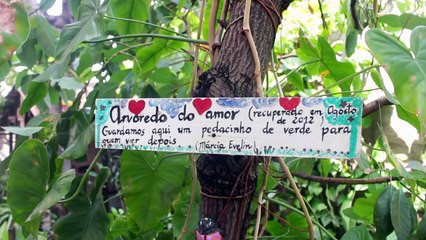 Arvoredo do amor (recuperado em Agosto de 2012)
Guardamos aqui um pedacinho de verde para
quem vier depois (Márcia Evelin)